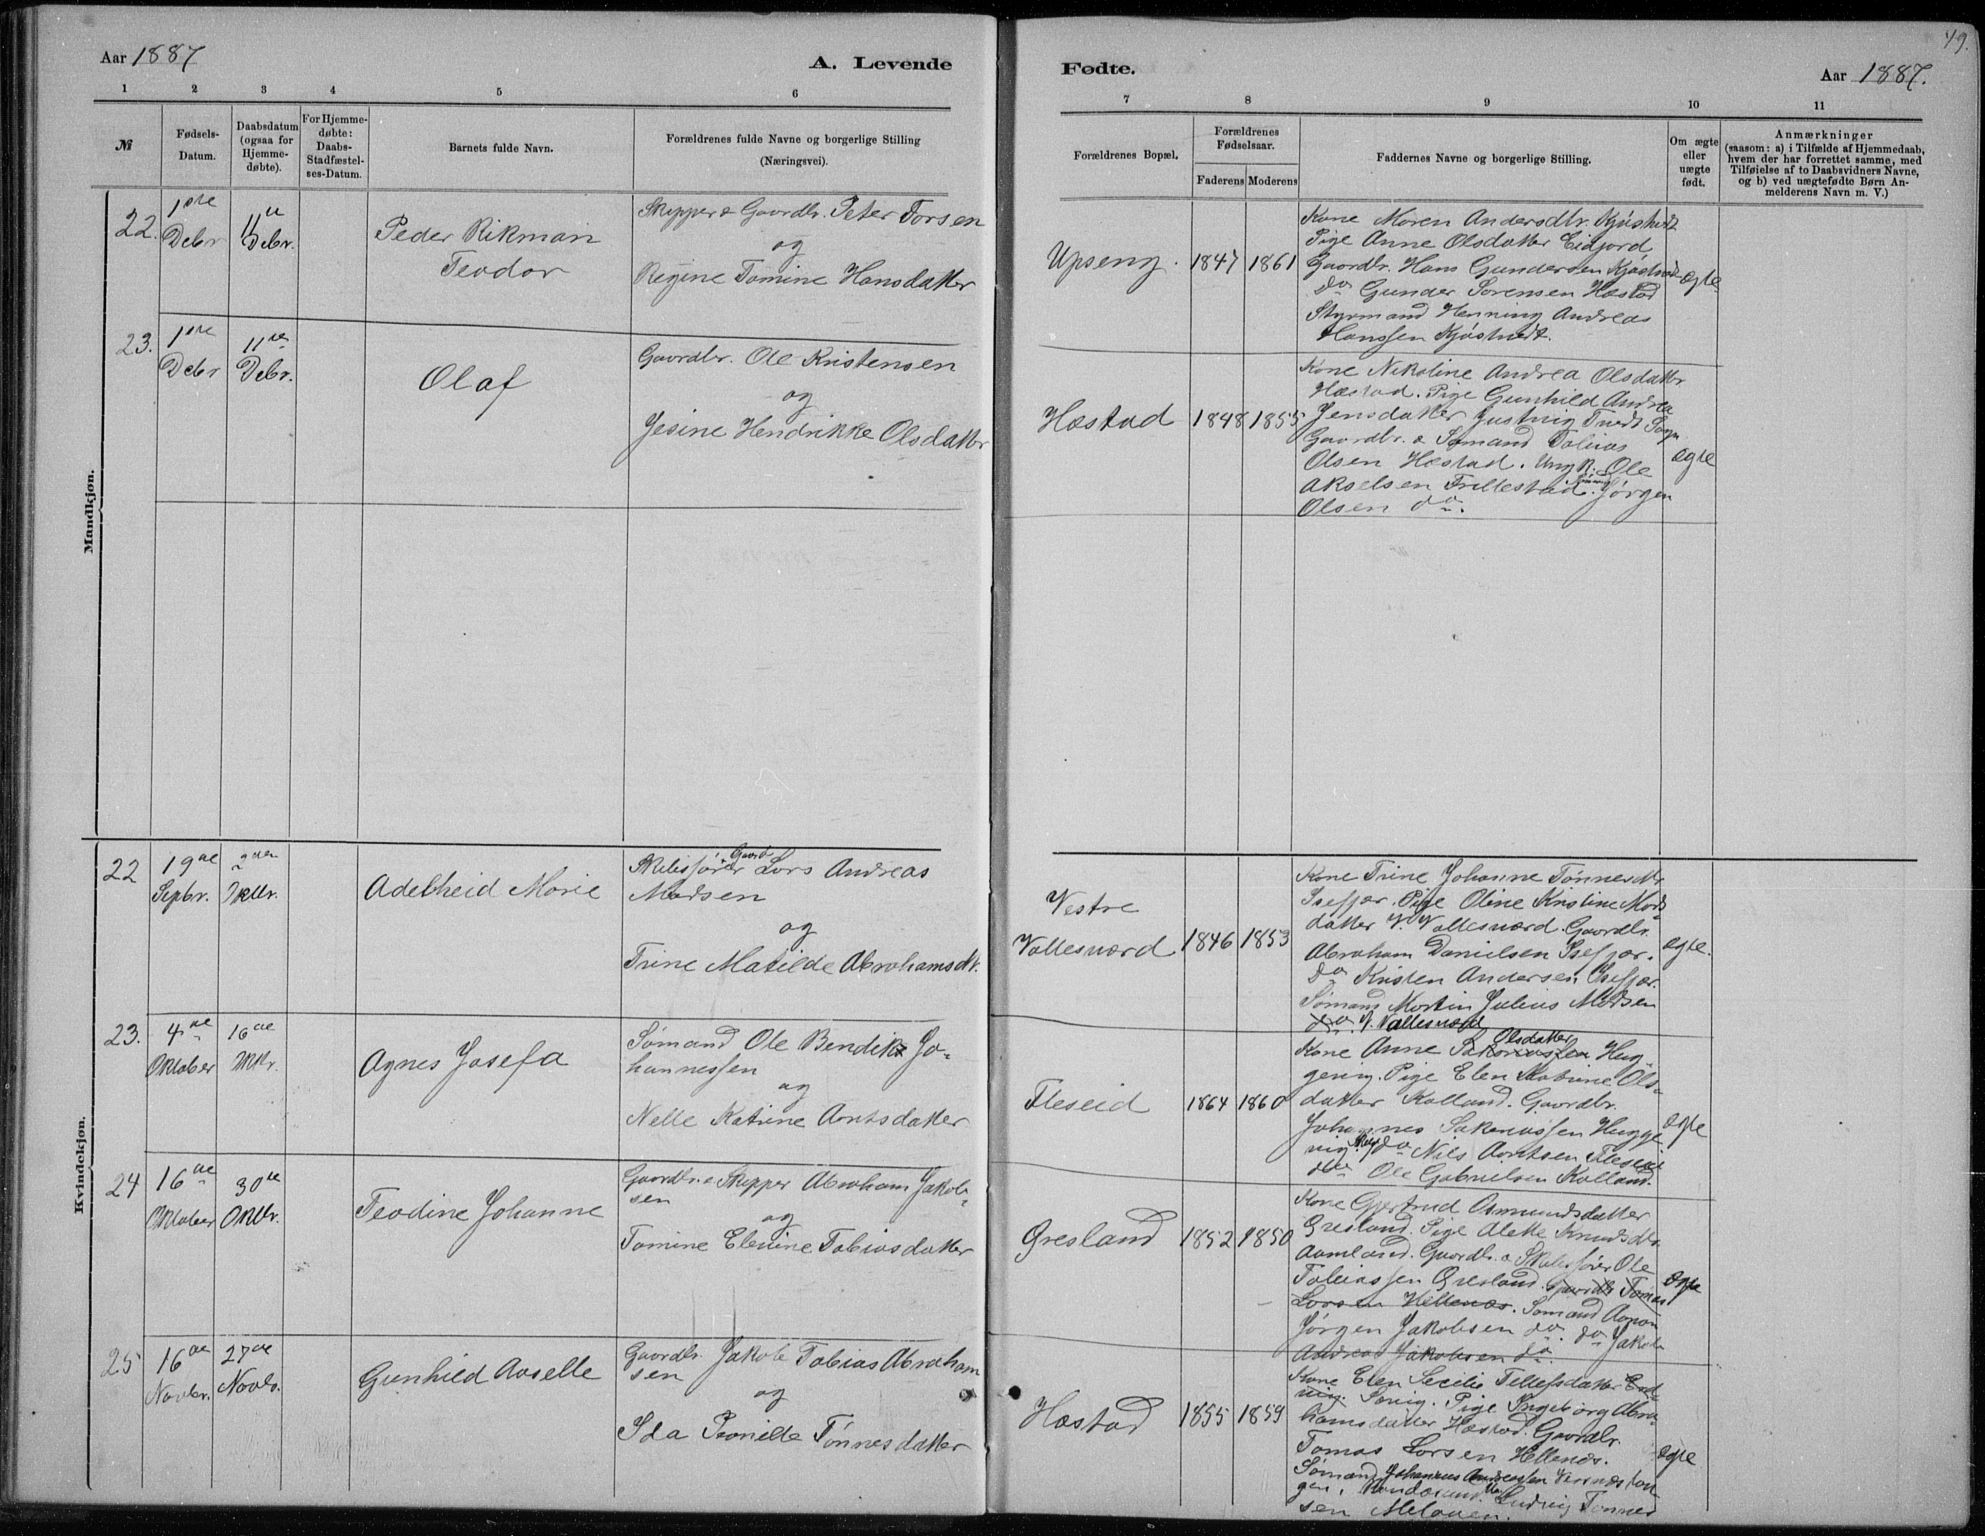 Aar 1887
A. Levende
1 2 3 4 5 6
№
Fødsels-
Datum.
Daabsdatum
(ogsaa for
Hjemme-
døbte).
For Hjemme-
døbte:
Daabs-
Stadfæstel-
ses-Datum.
Barnets fulde Navn.
Forældrenes fulde Navne og borgerlige Stilling
(Næringsvei).
Mandkjøn.
22.
1ste
Debr
11te
Debr.
Peder Rikman
Teodor
Skipper & Gaardbr. Peter Torsen
og
Regine Tomine Hansdatter
23.
1ste
Debr
11te
Debr.
Olaf
Gaardbr. Ole Kristensen
og
Jesine Hendrikke Olsdatter
Kvindekjøn.
22
19de
Sepbr.
2den
Oktbr.
Adelheid Marie
Gaard
Lars Andreas
Madsen
og
Trine Matilde Abrahamsdtr.
23.
4de
Oktober
16de
Oktbr.
Agnes Josefa
Sømand Ole Bendik Jo-
hannessen
og
Nelle Katrine Arntsdatter
24
16de
Oktober
30te
Oktbr.
Teodine Johanne
Gaardbr. & Skipper Abraham Jakob-
sen
og
Tomine Elenine Tobiasdatter
25
16de
Novbr.
27de
Novb.
Gunhild Aselle
Gaardbr. Jakob Tobias Abraham
sen
og
Ida Tønnesdatter
49.
Fødte.
Aar 1887.
7 8 9 10 11
Forældrenes Bopæl.
Forældrenes
Fødselsaar.
Faderens Moderens
Faddernes Navne og borgerlige Stilling.
Om ægte
eller
uægte
født.
Anmærkninger
(saasom: a) i Tilfælde af Hjemmedaab,
hvem der har forrettet samme, med
Tilføielse af to Daabsvidners Navne,
og b) ved uægtefødte Børn An-
melderens Navn m. V.)
Upseng. 1847 1861
Kone Maren Andersdtr. Kjøstvedt
Pige Anne Olsdatter Eidjord
Gaardbr. Hans Gundersen Kjøstvedt
do Gunder Sørensen Hæstad
Styrmand Henning Andreas
Hanssen Kjøstvedt.
ægte
Hæstad 1848 1855
Kone Nikoline Andrea Olsdatter
Hæstad. Pige Gunhild Andrea
Jensdatter Tvedt Sogn
Gaardbr. & Sømand Tobias
Olsen Hæstad. Ungk. Ole
Akselsen Frillestad. Sømand Jørgen
Olsen do.
ægte
Vestre
Vallesværd 1846 1853
Kone Trine Johanne Tønnesdtr.
Isefjær. Pige Oline Kristine Mads-
datter V. Vallesværd. Gaardbr.
Abraham Danielsen Isefjær.
do Kristen Andersen Isefjær.
Sømand Martin Julius Madsen
do. V. Vallesværd
ægte.
Fleseid 1864 1860
Olsdatter
Kone Anne Hug-
genvig. Pige Elen Katrine Ols-
datter Kalland. Gaardbr.
Johannes Sakariassen Hugge-
vig. do Nils Arntsen Fleseid
do Ole Gabrielsen Kalland.
ægte
Gresland 1852 1850
Kone Gjertrud Osmundsdatter
Gresland. Pige Alette Knudsdtr.
Aamland. Gaardbr. & Ole
Tobiassen Gresland. Gaardbr Tomas
Larsen Hellenes. Sømand Aanon
Jørgen Jakobsen do. do Jakob
Andreas Jakobsen do.
ægte
Hæstad 1855 1859
Kone Elen Secilie Tellefsdatter
Pige Ingeborg Abra-
hamsdatter Hæstad. Gaardbr.
Tomas Larsen Hellenes.
Sømand Johannes Andreassen
gen, Ludvig Tønnes-
sen
ægte